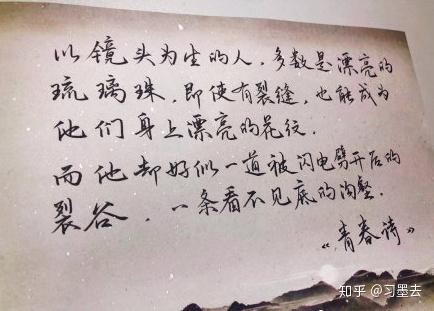 以镜头为生的人，多数是漂亮的
琉璃珠，即使有裂缝，也能成为
他们身上漂亮的花纹．
而他却好似一道被闪电劈开后的
裂谷．一条看不见底的沟壑．
《青春诗》
知乎 @习墨去